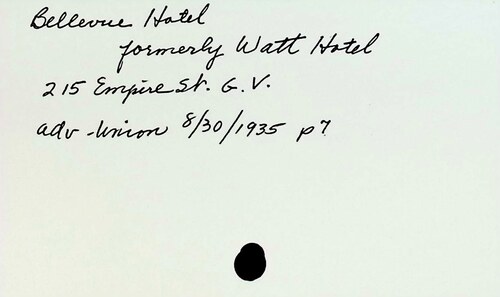 Bellevue Hotel
formerly Watt Hotel
215 Empire St. G. V.
adv - Union 8/30/1935 p7